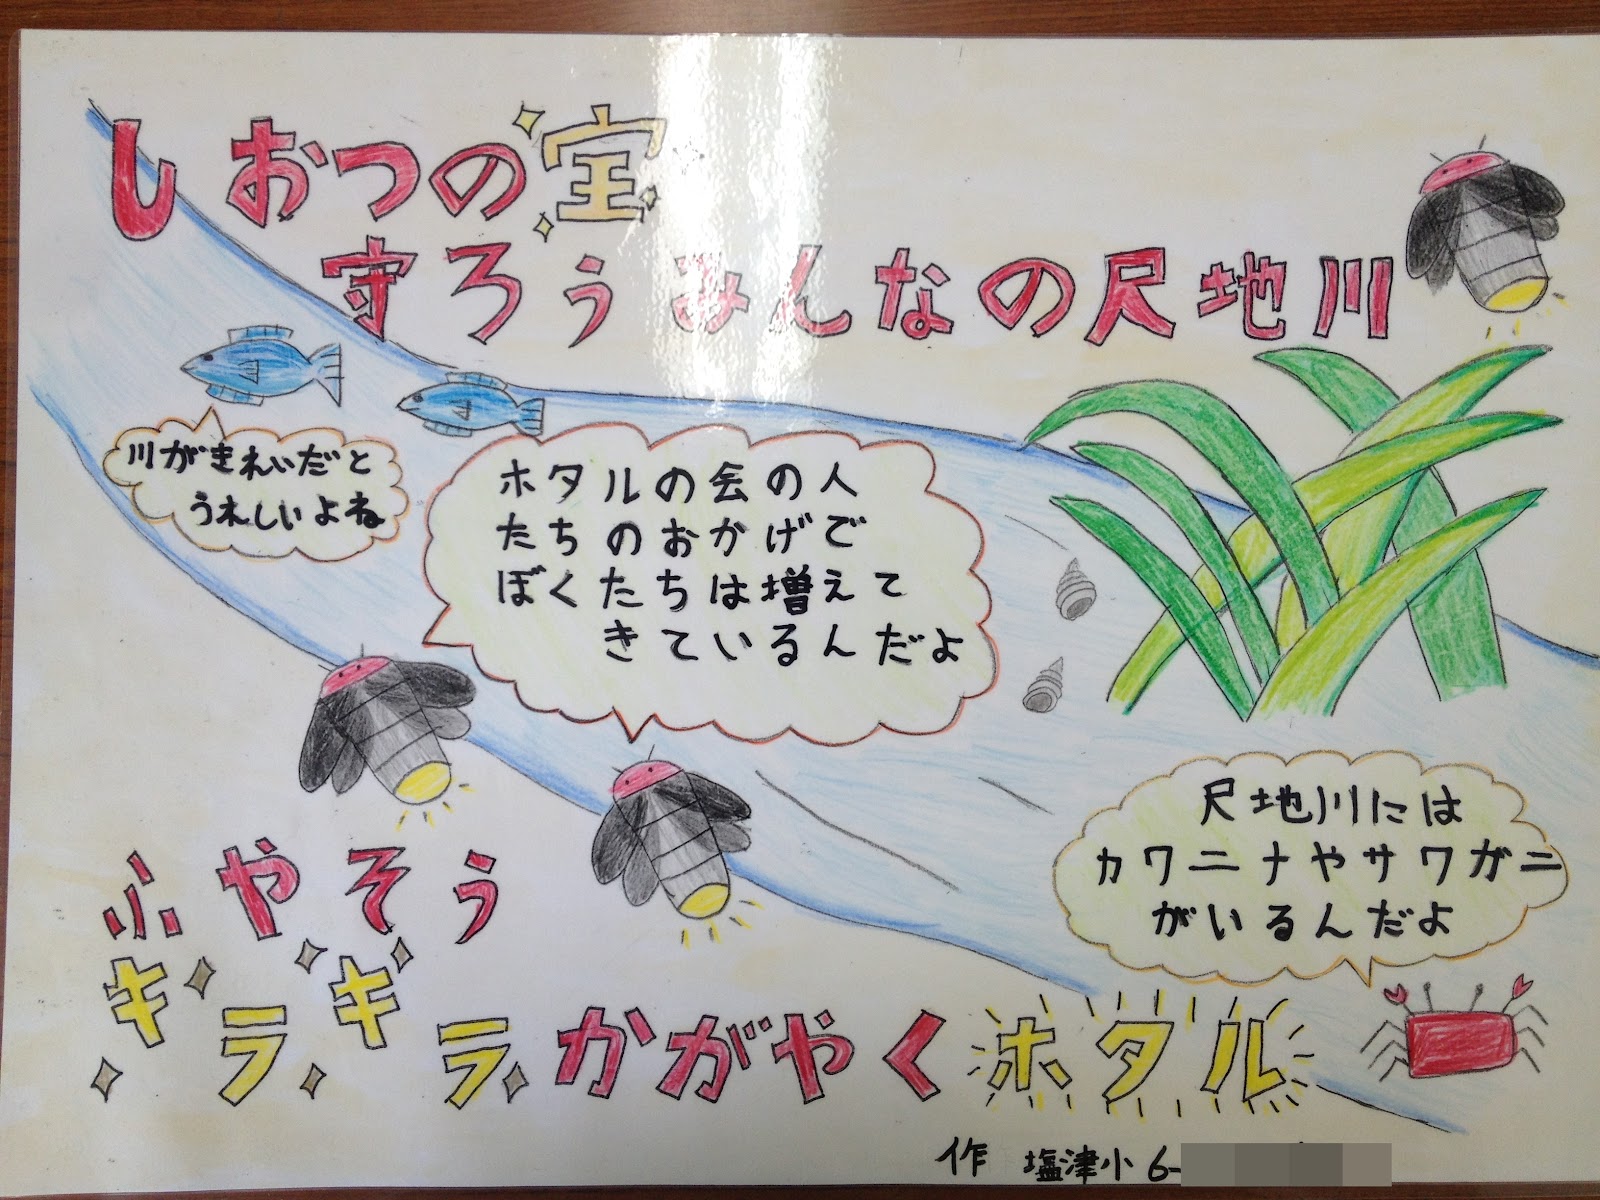 しおつの宝
守ろうみんなの尺地川
川がきれいだと
うれしいよね
ホタルの会の人
たちのおかげで
ぼくたちは増えて
きているんだよ
尺地川には
カワニナやサワガニ
がいるんだよ
ふやそう
キラキラかがやくホタル
作 塩津小6-